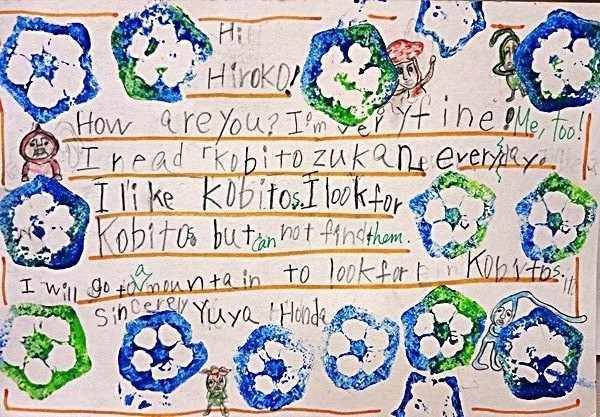 Hi
HiROKO!
How are you? I'm very fine! Me, too!
I read 「kobito zukan everyday.
I like Kobitos. I look for
Kobitos but can not find them.
I will go to a mountain to look for Kobitos.
Sincerely Yuya Honda